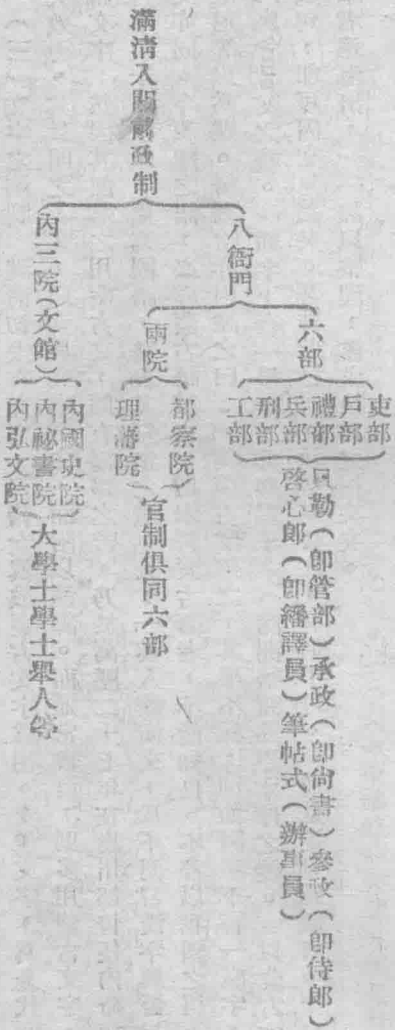 滿淸入關前政制
八衙門
六部
吏部
戶部
禮部
兵部
刑部
工部
貝勒（卽管部）承政（卽尙書）參政（卽侍郎）
啓心郎（卽繙譯員）筆帖式（辦事員）
兩院
都察院
理藩院
官制俱同六部
內三院（文館）
內國史院
內祕書院
內弘文院
大學士學士舉人等